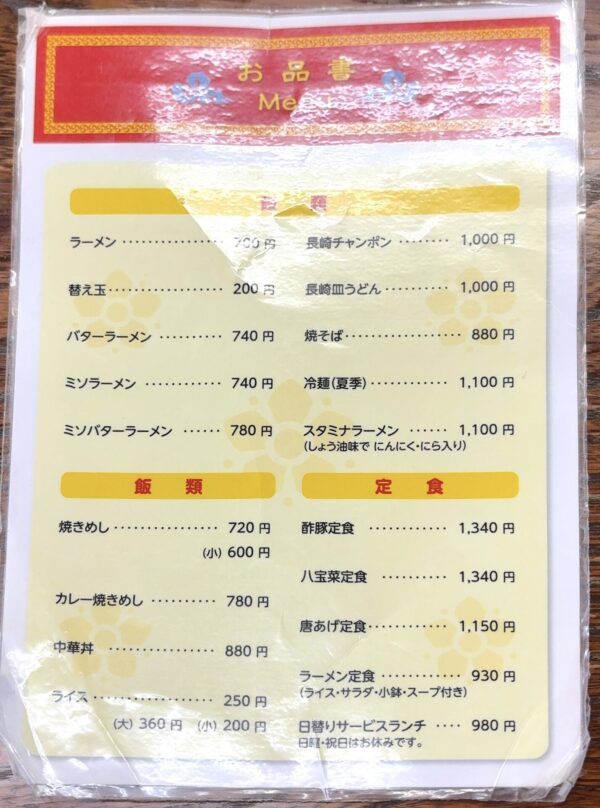 お品書
Menu
麺類
ラーメン ················ 700 円
替え玉 ················· 200 円
バターラーメン ·········· 740 円
ミソラーメン ············ 740 円
ミソバターラーメン ······ 780 円
長崎チャンポン ········ 1,000 円
長崎皿うどん ··········· 1,000 円
焼そば ····················· 880 円
冷麺(夏季) ············· 1,100 円
スタミナラーメン ······ 1,100 円
(しょう油味で にんにく・にら入り)
飯類
焼きめし ················ 720 円
(小) 600 円
カレー焼きめし ·········· 780 円
中華丼 ·················· 880 円
ライス ··················· 250 円
(大) 360 円 (小) 200 円
定食
酢豚定食 ············ 1,340 円
八宝菜定食 ·········· 1,340 円
唐あげ定食 ············ 1,150 円
ラーメン定食 ············ 930 円
(ライス・サラダ・小鉢・スープ付き)
日替りサービスランチ ···· 980 円
日曜・祝日はお休みです。